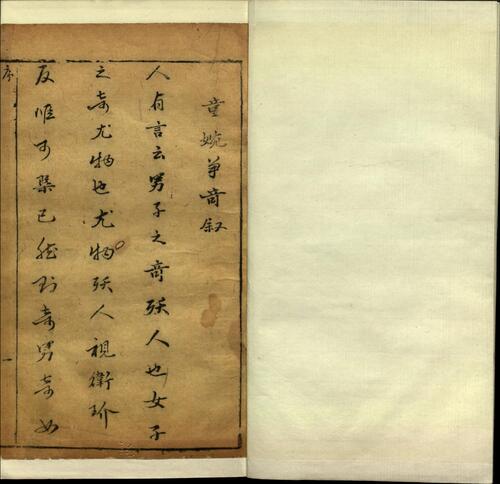 童婉爭奇敘
人有言云男子之奇殀人也女子
之奇尤物也尤物殀人視衛玠
反惟可槩已然則奇男奇女
序
一